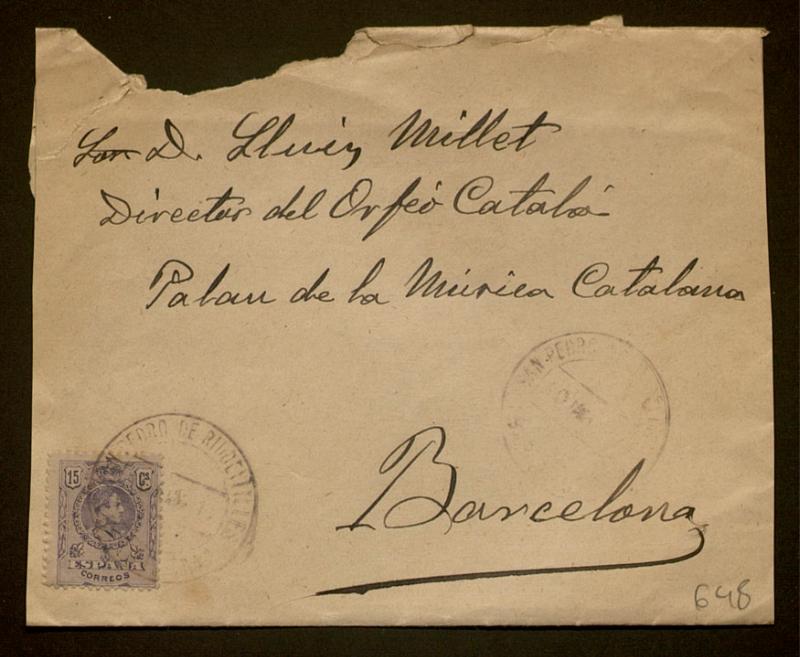 D. Lluis Millet
Director del Orfeó Catalá
Palau de la Música Catalana
SAN PEDRO DE
Barcelona
PEDRO DE RIUDEVITLLES
15 Cs
ESPAÑA
CORREOS
648